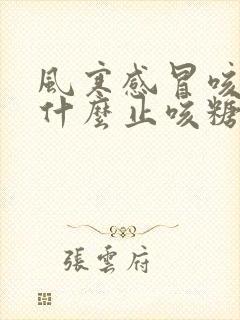 風寒感冒咳
什麼止咳糖
張雲府